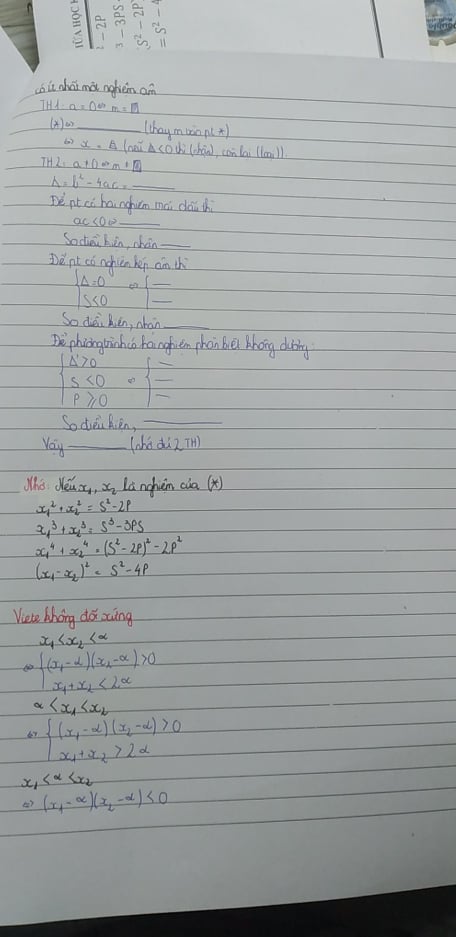 ² - 2P
³ - 3PS
(S² - 2P)
= S² - 4
có ít nhất một nghiệm âm
TH1: a = 0 ⇔ m = □
(*) ⇔ ______ (thay m vào pt *)
⇔ x = Δ (nếu Δ < 0 thì (nhận), còn lại (loại)).
TH2: a ≠ 0 ⇔ m ≠ □
Δ = b² - 4ac = ______
Để pt có hai nghiệm trái dấu thì
ac < 0 ⇔ ______
So điều kiện, nhận ______
Để pt có nghiệm kép âm thì
{ Δ = 0 ⇔ { —
{ S < 0 { —
So điều kiện, nhận ______
Để phương trình có hai nghiệm phân biệt không dương:
{ Δ > 0 { —
{ S < 0 ⇔ { —
{ P ⩾ 0 { —
So điều kiện, ______
Vậy ______ (nhớ đủ 2 TH)
Nhớ: Nếu x₁, x₂ là nghiệm của (*)
x₁² + x₂² = S² - 2P
x₁³ + x₂³ = S³ - 3PS
x₁⁴ + x₂⁴ = (S² - 2P)² - 2P²
(x₁ - x₂)² = S² - 4P
Viete không đối xứng
x₁ < x₂ < α
⇔ { (x₁ - α)(x₂ - α) > 0
{ x₁ + x₂ < 2α
α < x₁ < x₂
⇔ { (x₁ - α)(x₂ - α) > 0
{ x₁ + x₂ > 2α
x₁ < α < x₂
⇔ (x₁ - α)(x₂ - α) < 0